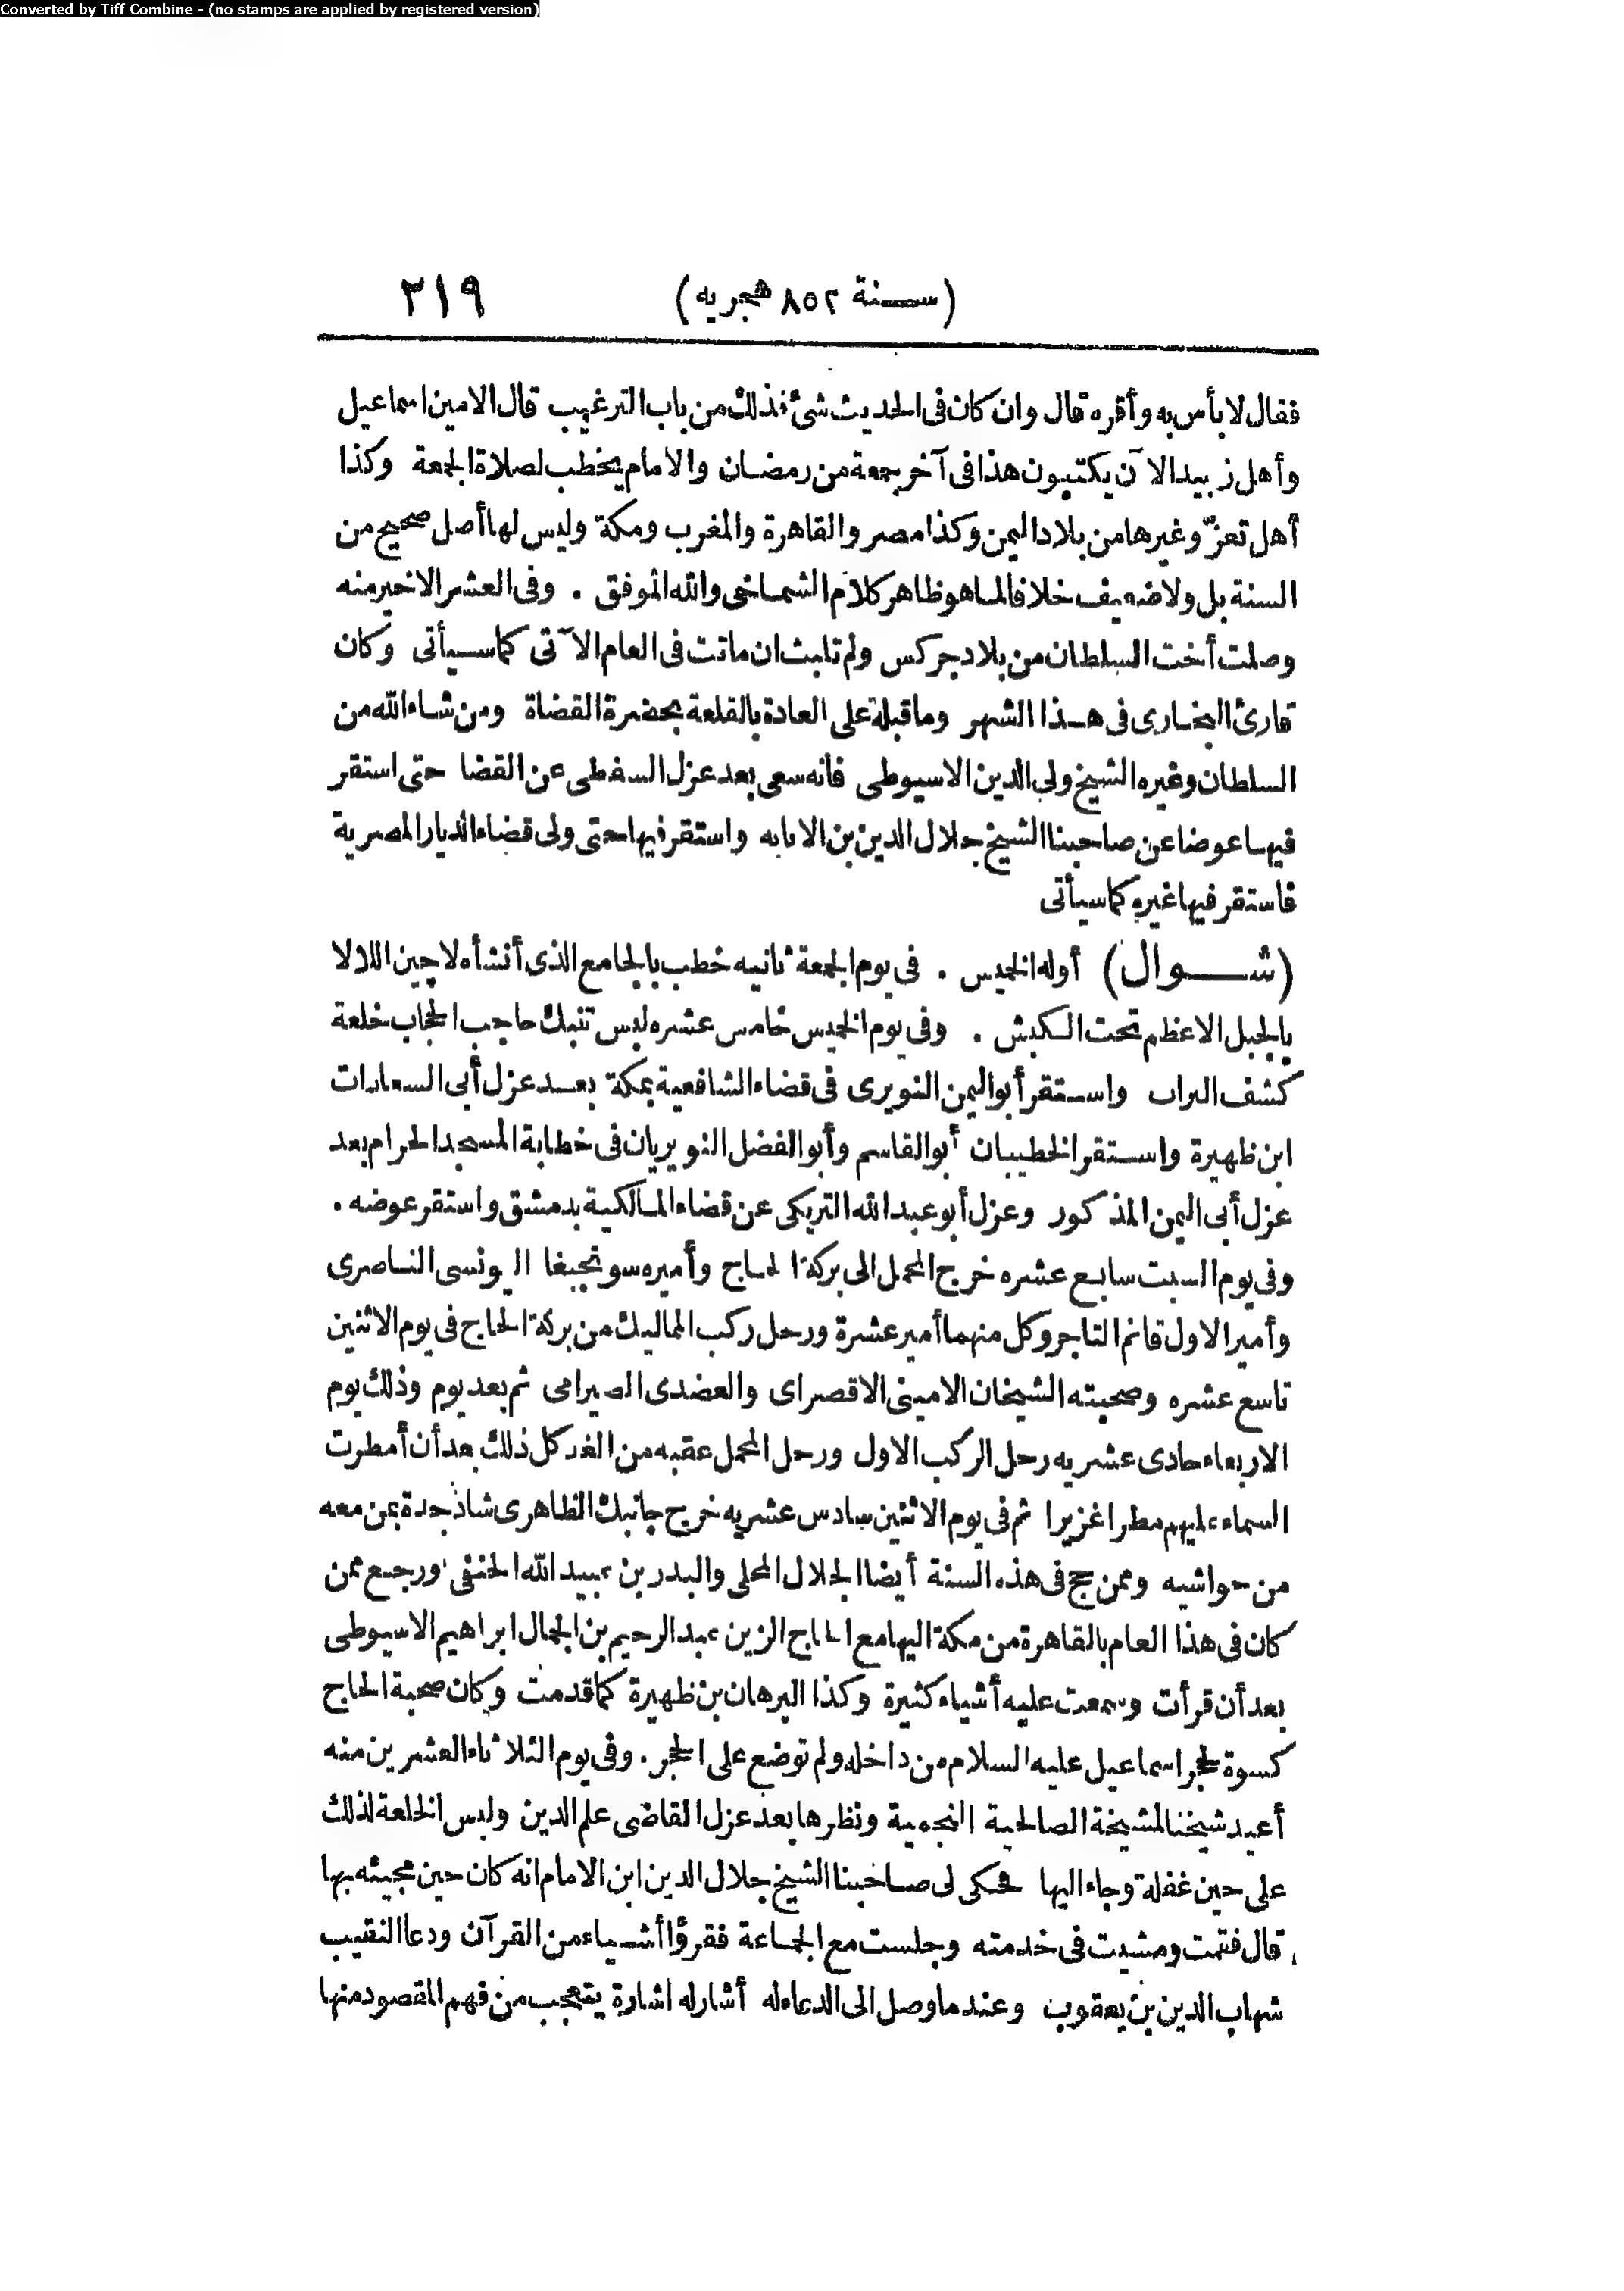 Converted by Tiff Combine - (no stamps are applied by registered version)
(سنة ٨٥٢ هجريه) ٢١٩
فقال لا بأس به وأقره قال وان كان فى الحديث شئ فذلك من باب الترغيب قال الامين اسماعيل
وأهل زبيد الآن يكتبون هذا فى آخر جمعة من رمضان والامام يخطب لصلاة الجمعة وكذا
أهل تعزّ وغيرها من بلاد اليمن وكذا مصر والقاهرة والمغرب ومكة وليس لها أصل صحيح من
السنة بل ولا ضعيف خلافا لما هو ظاهر كلام الشماخى والله الموفق . وفى العشر الاخير منه
وصلت أخت السلطان من بلاد جركس ولم تلبث ان ماتت فى العام الآتى كما سيأتى وكان
قارئ البخارى فى هذا الشهر وما قبله على العادة بالقلعة بحضرة القضاة ومن شاء الله من
السلطان وغيره الشيخ ولى الدين الاسيوطى فانه سعى بعد عزل السفطى عن القضا حتى استقر
فيها عوضا عن صاحبنا الشيخ جلال الدين بن الامانه واستقر فيها حتى ولى قضاء الديار المصرية
فاستقر فيها غيره كما سيأتى
(شوال) أوله الخميس . فى يوم الجمعة ثانيه خطب بالجامع الذى أنشأه لاچين اللالا
بالجبل الاعظم تحت الكبش . وفى يوم الخميس خامس عشره لبس تنبك حاجب الحجاب خلعة
كشف التراب واستقر أبو اليمن النويرى فى قضاء الشافعية بمكة بعد عزل أبى السعادات
ابن ظهيرة واستقر الخطيبان أبو القاسم وأبو الفضل النويريان فى خطابة المسجد الحرام بعد
عزل أبى اليمن المذكور وعزل أبو عبد الله التريكى عن قضاء المالكية بدمشق واستقر عوضه .
وفى يوم السبت سابع عشره خرج المحمل الى بركة الحاج وأميره سونجبغا اليونسى الناصرى
وأمير الاول قانم التاجر وكل منهما أمير عشرة ورحل ركب المماليك من بركة الحاج فى يوم الاثنين
تاسع عشره وصحبته الشيخان الامينى الاقصراى والعضدى الصيرامى ثم بعد يوم وذلك يوم
الاربعاء حادى عشريه رحل الركب الاول ورحل المحمل عقبه من الغد كل ذلك بعد أن أمطرت
السماء عليهم مطرا غزيرا ثم فى يوم الاثنين سادس عشريه خرج جانبك الظاهرى شاد جدة بمن معه
من حواشيه وممن حج فى هذه السنة أيضا الجلال المحلى والبدر بن عبيد الله الحنفى ورجع ممن
كان فى هذا العام بالقاهرة من مكة اليها مع الحاج الزين عبد الرحيم بن الجمال ابراهيم الاسيوطى
بعد أن قرأت وسمعت عليه أشياء كثيرة وكذا البرهان بن ظهيرة كما قدمت وكان صحبة الحاج
كسوة لحجر اسماعيل عليه السلام من داخله ولم توضع على الحجر . وفى يوم الثلاثاء العشرين منه
أعيد شيخنا لمشيخة الصالحية النجمية ونظرها بعد عزل القاضى علم الدين ولبس الخلعة لذلك
على حين غفلة وجاء اليها فحكى لى صاحبنا الشيخ جلال الدين ابن الامام انه كان حين مجيئه بها
قال فقمت ومشيت فى خدمته وجلست مع الجماعة فقرؤا أشياء من القرآن ودعا النقيب
شهاب الدين بن يعقوب وعندما وصل الى الدعاء له أشار له اشارة يتعجب من فهم المقصود منها